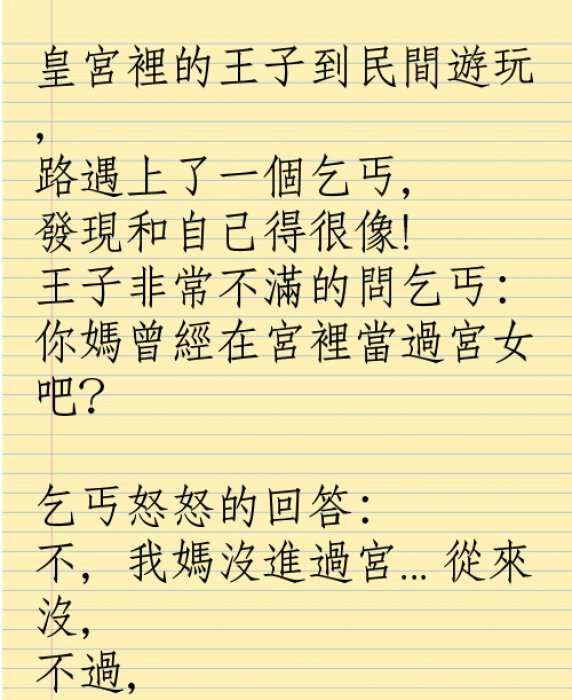 皇宮裡的王子到民間遊玩
,
路遇上了一個乞丐,
發現和自己得很像!
王子非常不滿的問乞丐:
你媽曾經在宮裡當過宮女
吧?
乞丐怒怒的回答:
不, 我媽沒進過宮... 從來
沒,
不過,